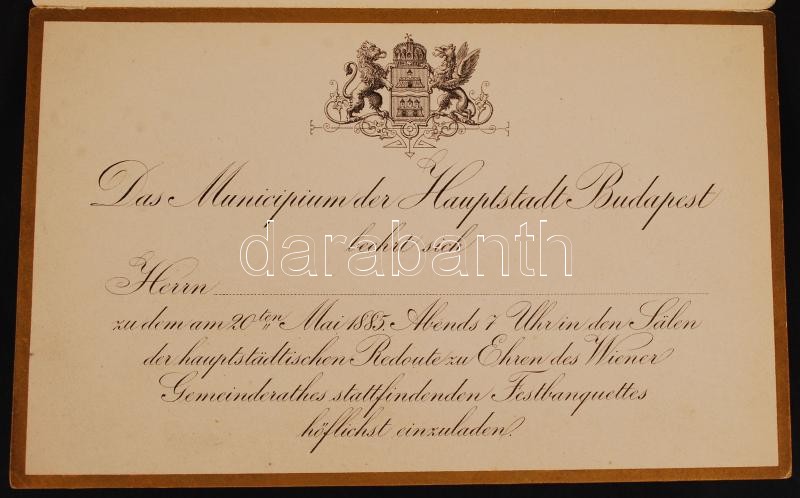 Das Municipium der Hauptstadt Budapest
beehrt sich
darabanth
Herrn
zu dem am 20ten Mai 1885. Abends 7 Uhr in den Sälen
der hauptstädtischen Redoute zu Ehren des Wiener
Gemeinderathes stattfindenden Festbanquettes
höflichst einzuladen.